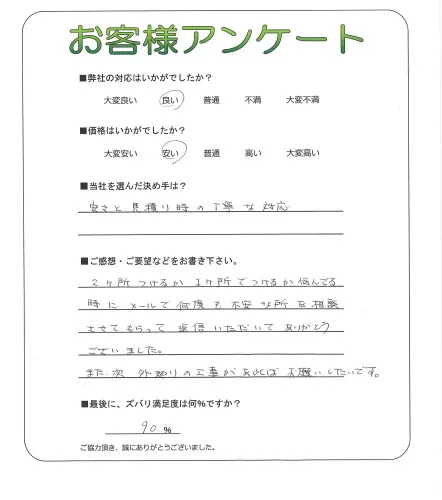 お客様アンケート
■弊社の対応はいかがでしたか?
大変良い 良い 普通 不満 大変不満
■価格はいかがでしたか?
大変安い 安い 普通 高い 大変高い
■当社を選んだ決め手は?
安さと見積り時の丁寧な対応
■ご感想・ご要望などをお書き下さい。
2ヶ所つけるか1ヶ所でつけるか悩んでる
時にメールで何度も不安な所を相談
させてもらって返信いただいてありがとう
ございました。
また次外廻りの工事があればお願いしたいです。
■最後に、ズバリ満足度は何%ですか?
90 %
ご協力頂き、誠にありがとうございました。